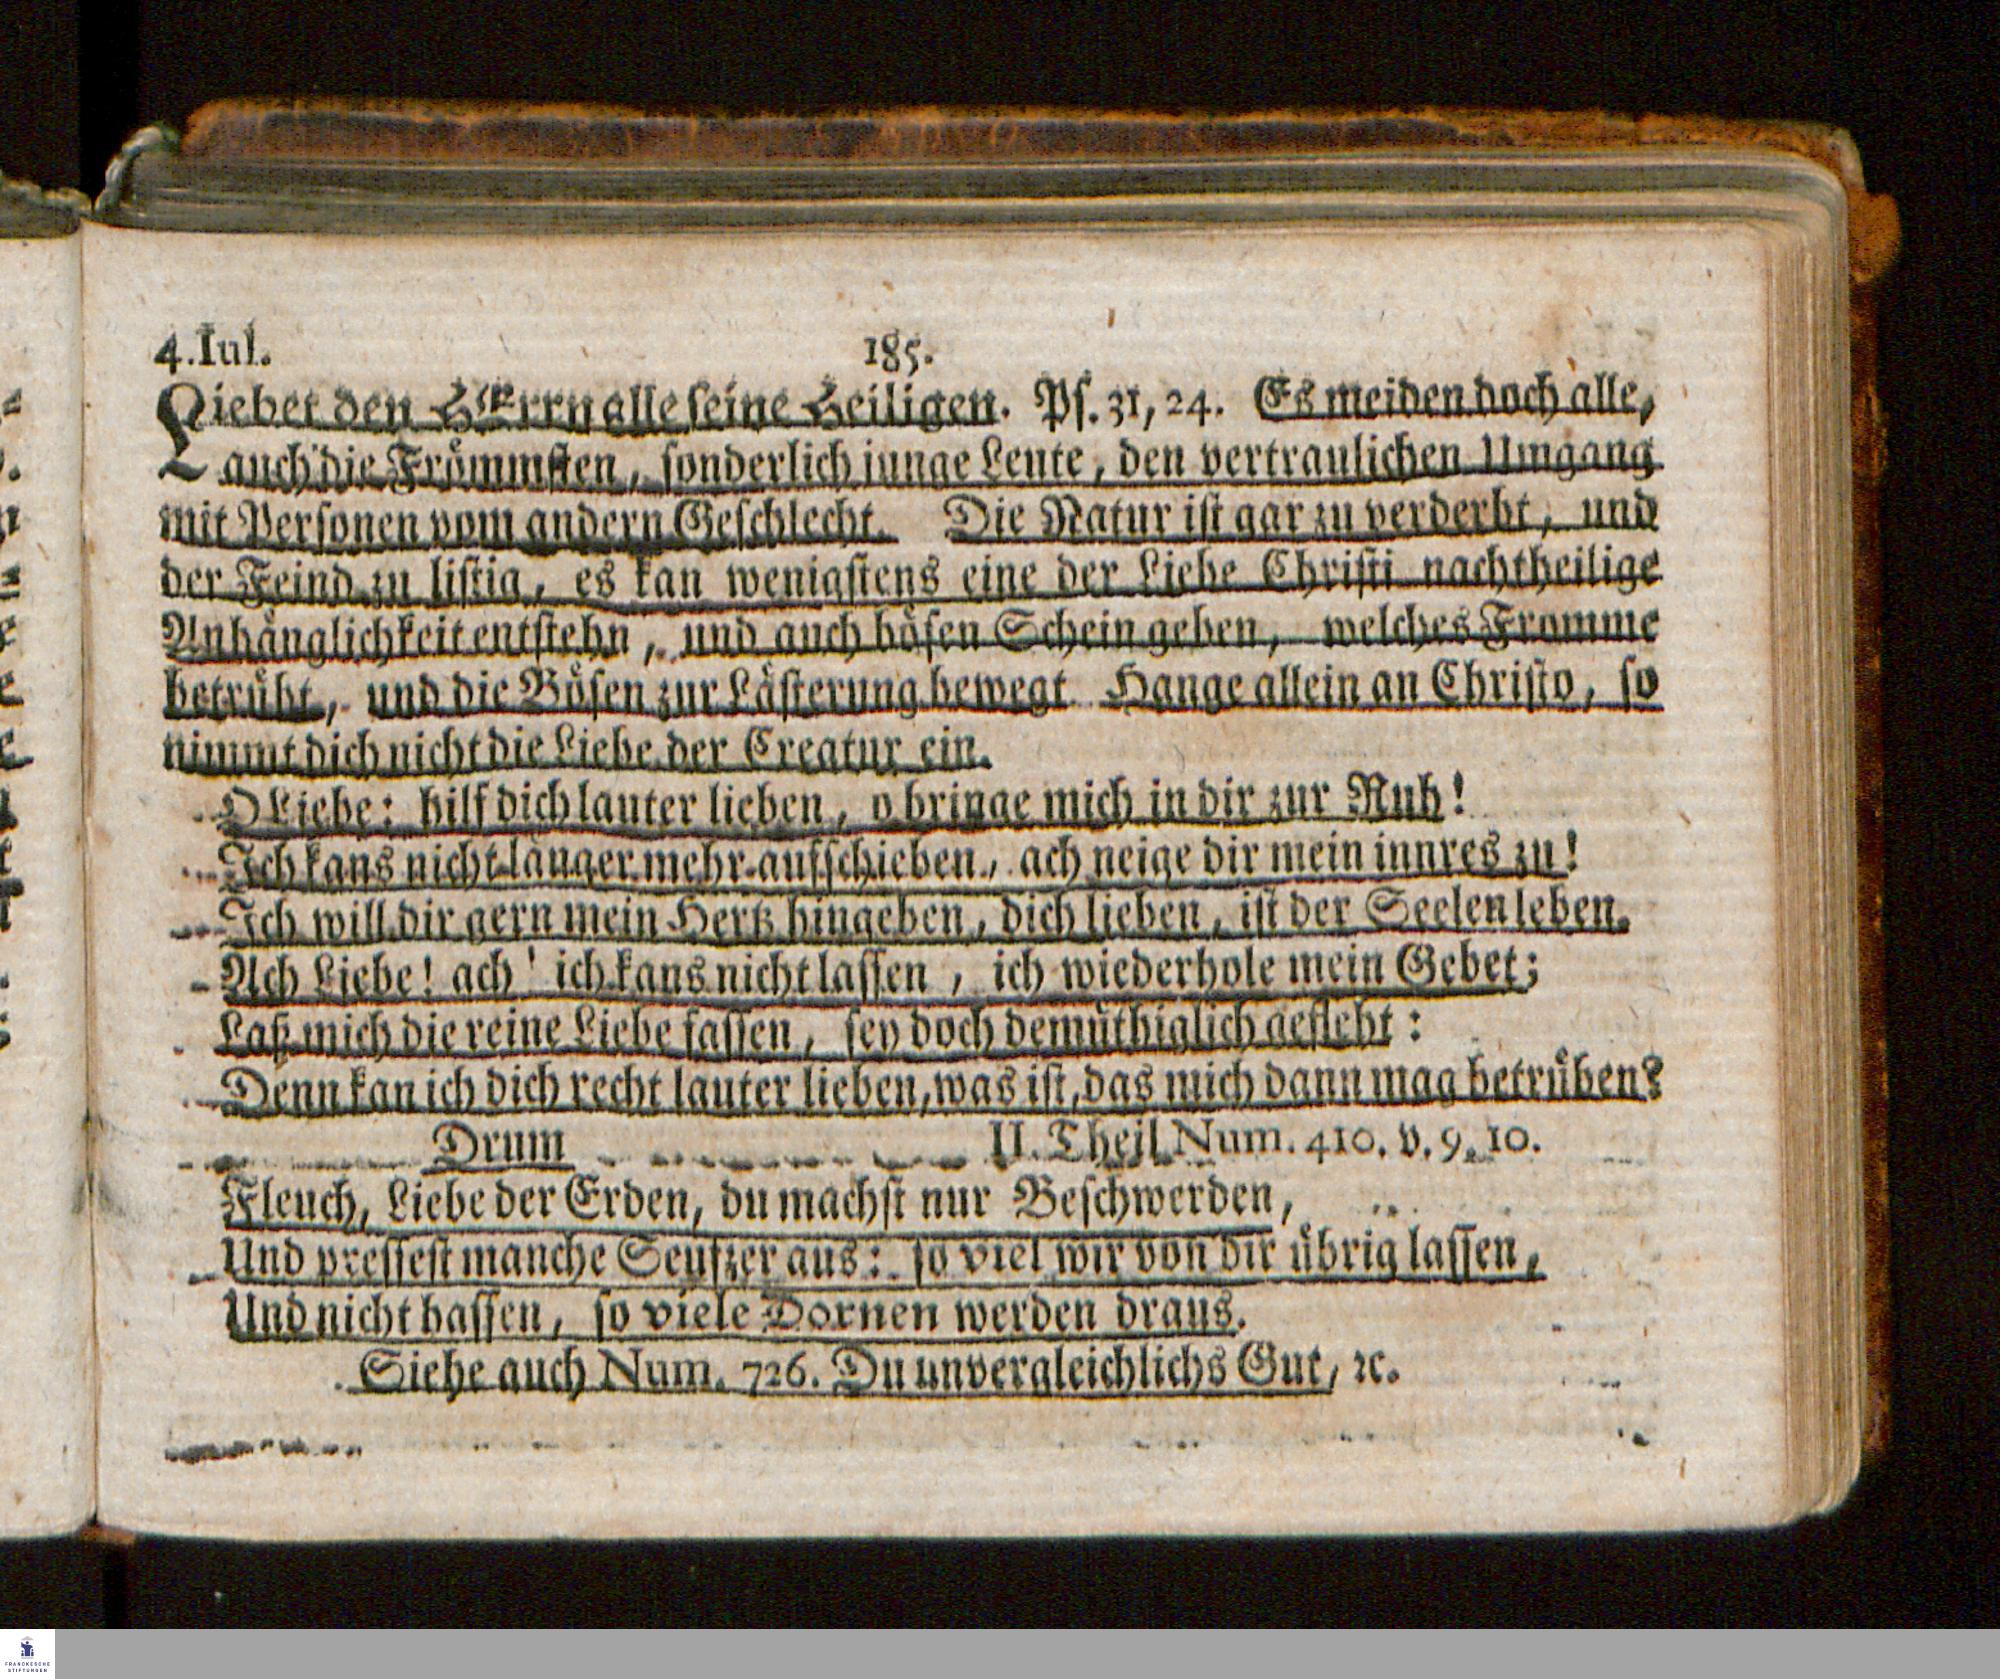 4. Iul. 185.
Liebet den HErrn alle seine Heiligen. Ps. 31, 24. Es meiden doch alle,
auch die Frömmsten, sonderlich junge Leute, den vertraulichen Umgang
mit Personen vom andern Geschlecht. Die Natur ist gar zu verderbt, und
der Feind zu listig, es kan wenigstens eine der Liebe Christi nachtheilige
Anhänglichkeit entstehn, und auch bösen Schein geben, welches Fromme
betrübt, und die Bösen zur Lästerung bewegt Hange allein an Christo, so
nimmt dich nicht die Liebe der Creatur ein.
O Liebe: hilf dich lauter lieben, o bringe mich in dir zur Ruh!
Ich kans nicht länger mehr aufschieben, ach neige dir mein innres zu!
Ich will dir gern mein Hertz hingeben, dich lieben, ist der Seelen leben.
Ach Liebe! ach! ich kans nicht lassen, ich wiederhole mein Gebet;
Laß mich die reine Liebe fassen, sey doch demüthiglich gefleht:
Denn kan ich dich recht lauter lieben, was ist, das mich dann mag betrüben?
Drum II. Theil Num. 410. v. 9. 10.
Fleuch, Liebe der Erden, du machst nur Beschwerden,
Und pressest manche Seufzer aus: so viel wir von dir übrig lassen,
Und nicht hassen, so viele Dornen werden draus.
Siehe auch Num. 726. Du unvergleichlichs Gut, ꝛc.
FRANCKESCHE
STIFTUNGEN